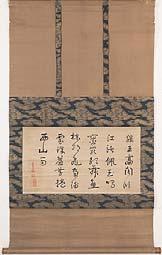 滕王高閣臨
江渚佩玉鳴
鸞罷歌舞畫
棟朝飛南浦
雲珠簾暮捲
西山雨